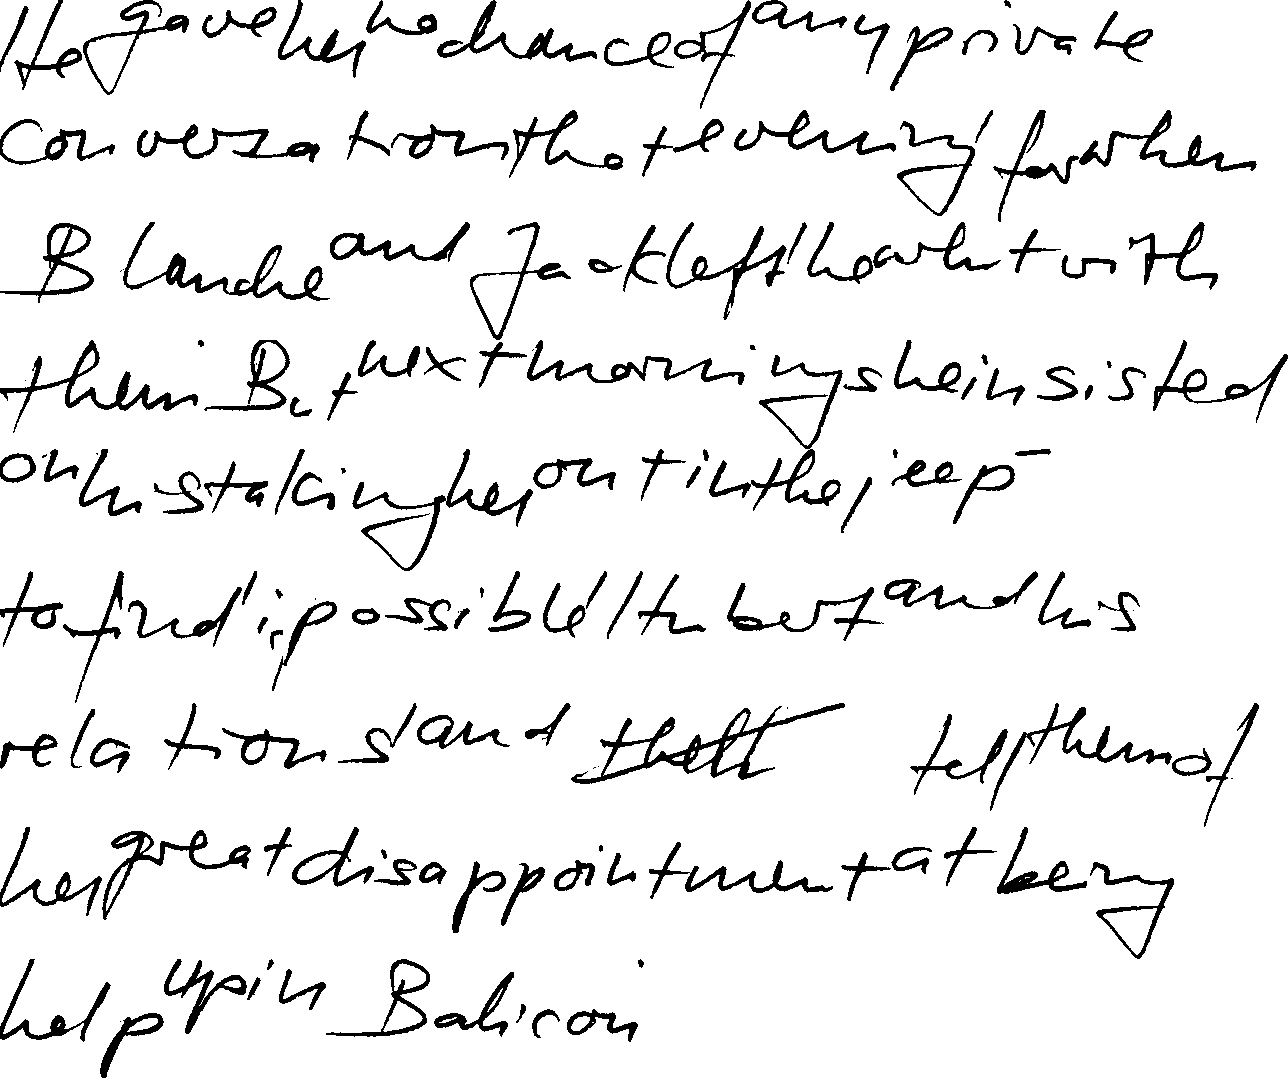 He gave her no chance of any private
converzation that evening for when
Blanche and Jack left he went with
them. But next morning she insisted
on his taking her out in the jeep
to find, if possible, Hubert and his
relations, and tell them of
her great disappointment at being
help up in Balicon.